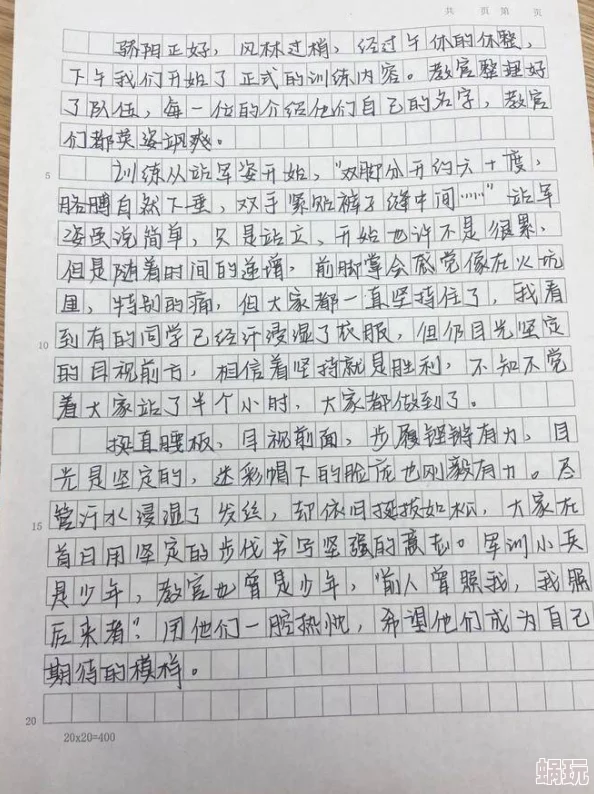 共 页 第 页
骄阳正好，风林过梢，经过午休的休整，
下午我们开始了正式的训练内容。教官整理好
了队伍，每一位的介绍他们自己的名字，教官
们都英姿飒爽。
5 训练从站军姿开始，"双脚分开约六十度，
胳膊自然下垂，双手紧贴裤子缝中间……"站军
姿虽说简单，只是站立，开始也许不是很累，
但是随着时间的递增，前脚掌会感觉像在火坑
里，特别的痛，但大家都一直坚持住了，我看
10 到有的同学已经汗浸湿了衣服，但仍目光坚定
的目视前方，相信着坚持就是胜利，不知不觉
着大家站了半个小时，大家都做到了。
挺直腰板，目视前面，步履铿锵有力，目
光是坚定的，迷彩帽下的脸庞也刚毅有力。尽
15 管汗水浸湿了发丝，却依旧挺拔如松，大家在
首日用坚定的步伐书写坚强的意志。军训小兵
是少年，教官也曾是少年，"前人曾照我，我照
后来者"？用他们一腔热忱，希望他们成为自己
期待的模样。
20
20x20=400
蜗玩